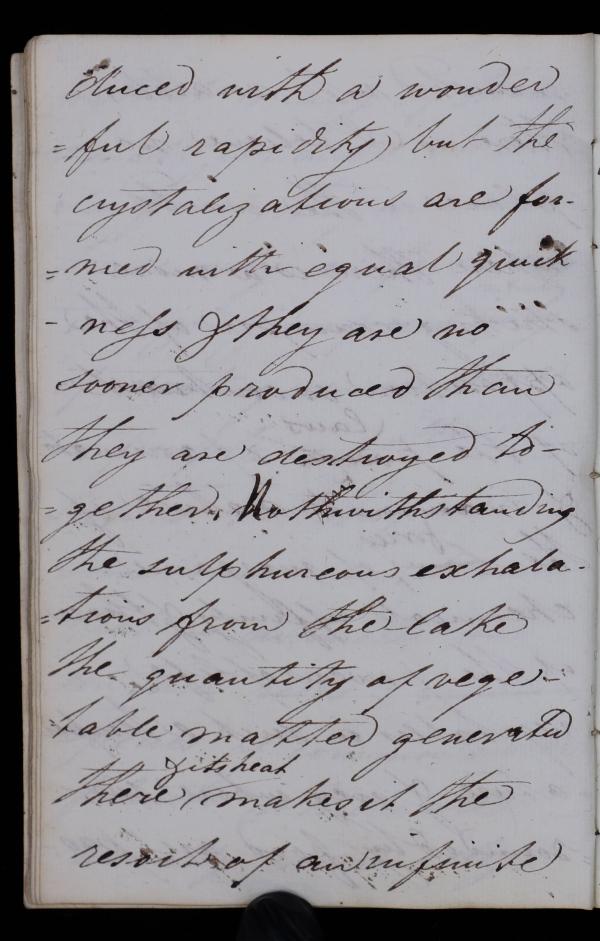 duced with a wonder
=ful rapidity but the
crystalizations are for-
=med with equal quick
-ness & they are no
sooner produced than
they are destroyed to-
=gether. Nothwithstanding
the sulphureous exhala-
=tions from the lake
the quantity of vege-
=table matter generated
& its heat
there makes it the
resort of an infinite